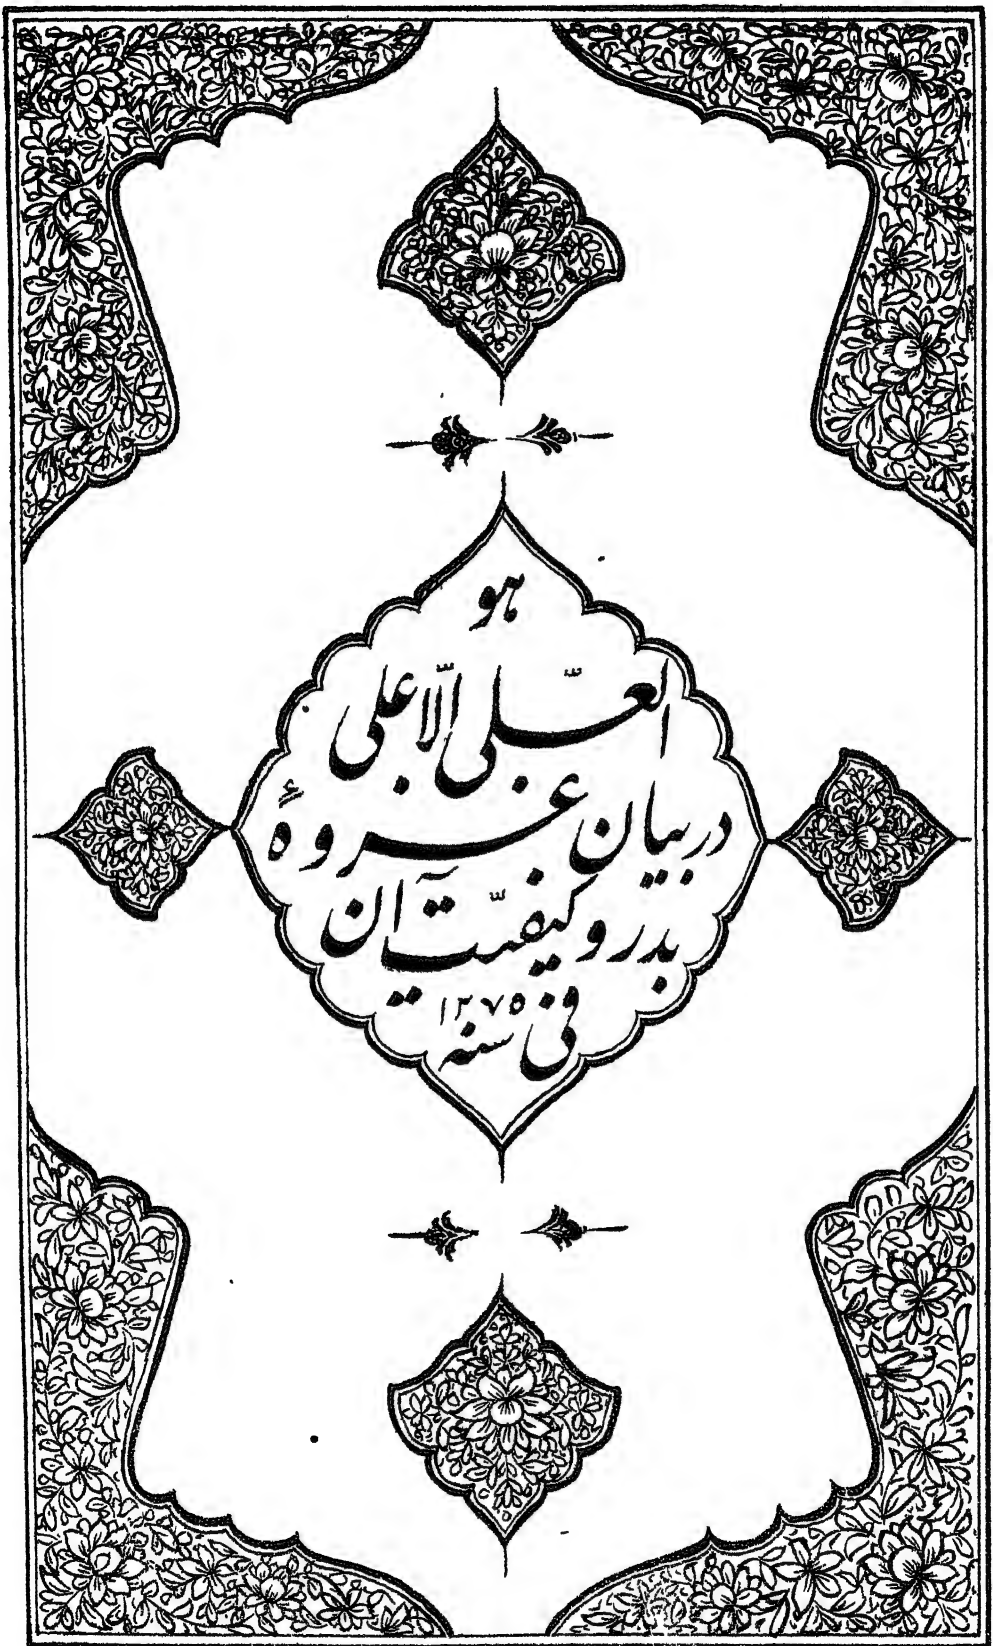 هو
العلّی الاّعلی
در بیان غزوهٔ
بدر و کیفیّت آن
فی سنه ۱۲۷۵